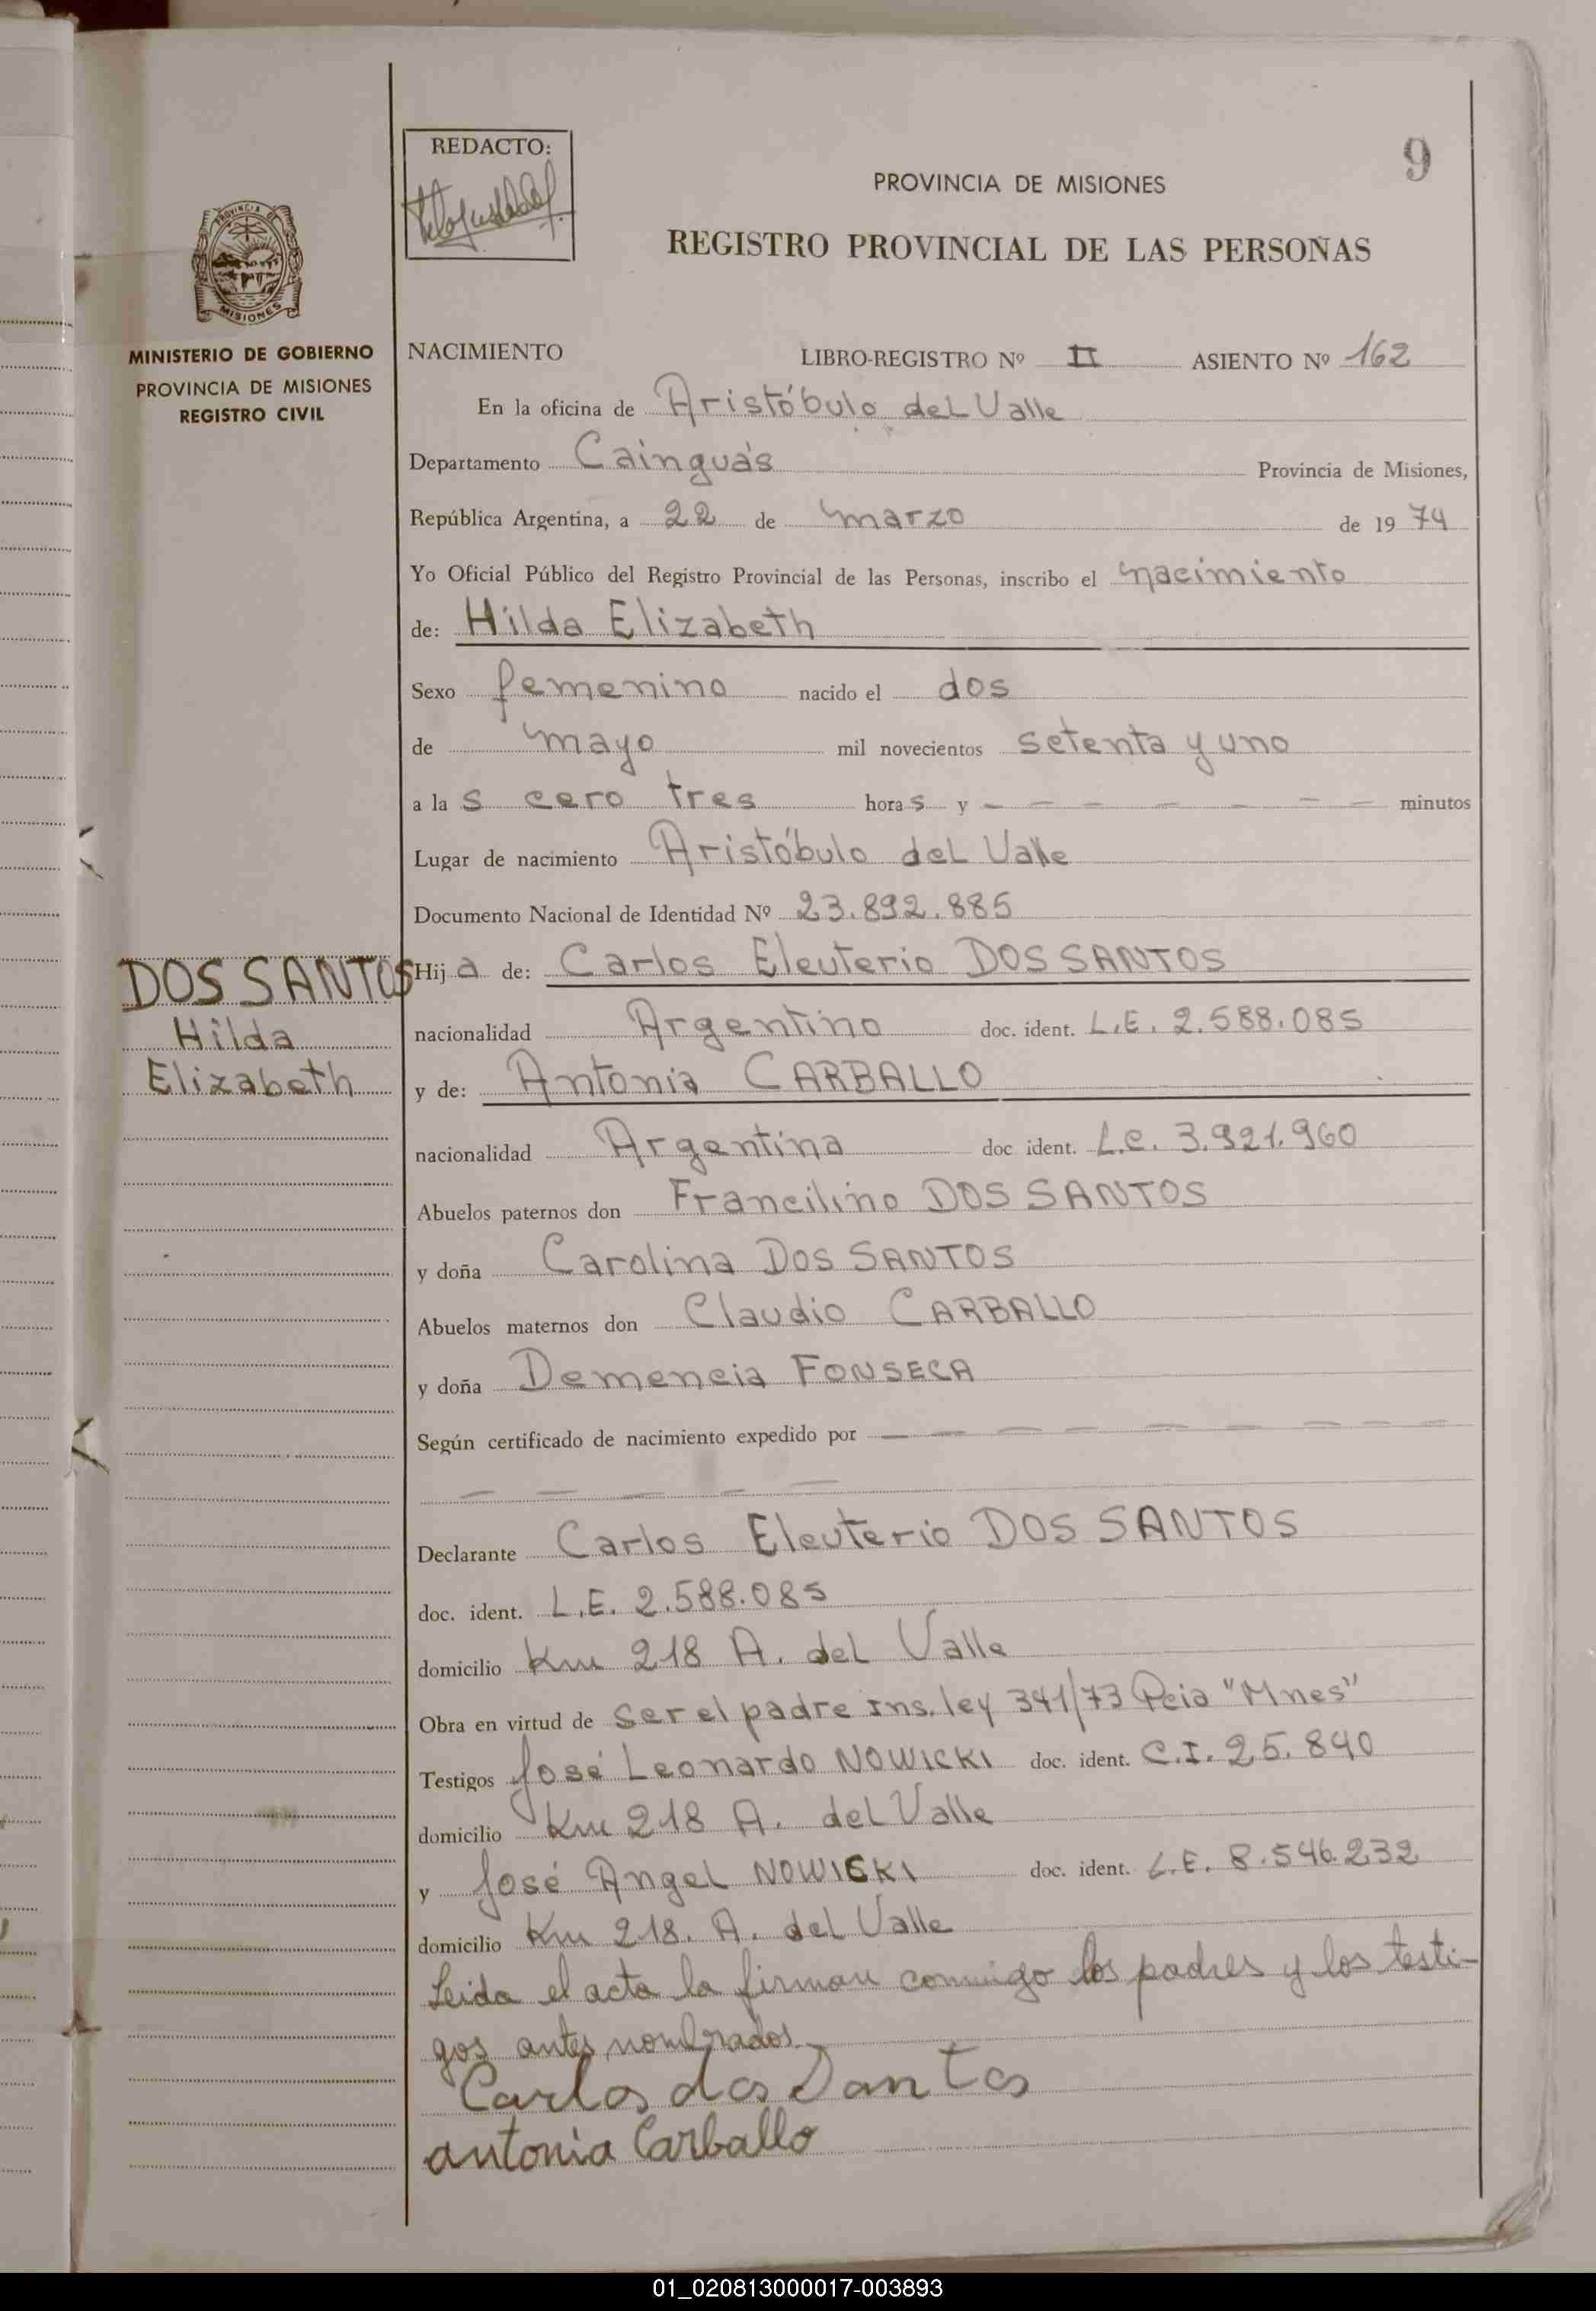 REDACTO:
9
PROVINCIA DE MISIONES
REGISTRO PROVINCIAL DE LAS PERSONAS
PROVINCIA DE
MISIONES
MINISTERIO DE GOBIERNO
PROVINCIA DE MISIONES
REGISTRO CIVIL
NACIMIENTO LIBRO-REGISTRO Nº II ASIENTO Nº 162
En la oficina de Aristóbulo del Valle
Departamento Cainguás Provincia de Misiones,
República Argentina, a 22 de marzo de 19 74
Yo Oficial Público del Registro Provincial de las Personas, inscribo el nacimiento
de: Hilda Elizabeth
Sexo femenino nacido el dos
de mayo mil novecientos setenta y uno
a la s cero tres hora s y — — — — — — — minutos
Lugar de nacimiento Aristóbulo del Valle
Documento Nacional de Identidad Nº 23.892.885
DOS SANTOS
Hilda
Elizabeth
Hij a de: Carlos Eleuterio DOS SANTOS
nacionalidad Argentino doc. ident. L.E. 2.588.085
y de: Antonia CARBALLO
nacionalidad Argentina doc ident. L.C. 3.921.960
Abuelos paternos don Francilino DOS SANTOS
y doña Carolina DOS SANTOS
Abuelos maternos don Claudio CARBALLO
y doña Demencia FONSECA
Según certificado de nacimiento expedido por — — — — — — — —
— — — — —
Declarante Carlos Eleuterio DOS SANTOS
doc. ident. L.E. 2.588.085
domicilio Km 218 A. del Valle
Obra en virtud de ser el padre Ins. ley 341/73 Pcia "Mnes"
Testigos José Leonardo NOWICKI doc. ident. C.I. 25.840
domicilio Km 218 A. del Valle
y José Angel NOWICKI doc. ident. L.E. 8.546.232
domicilio Km 218. A. del Valle
Leida el acta la firman conmigo los padres y los testi-
gos antes nombrados.
Carlos dos Santos
antonia Carballo
01_020813000017-003893